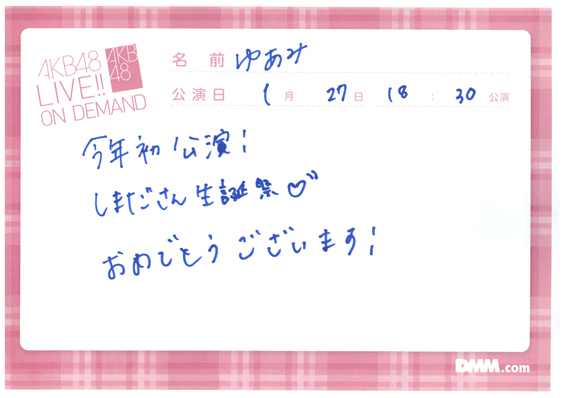 AKB48
LIVE!!
ON DEMAND
AKB
48
名 前 ゆあみ
公演日 1月 27日 18:30 公演
今年初公演!
しまださん生誕祭♡
おめでとうございます!
DMM.com